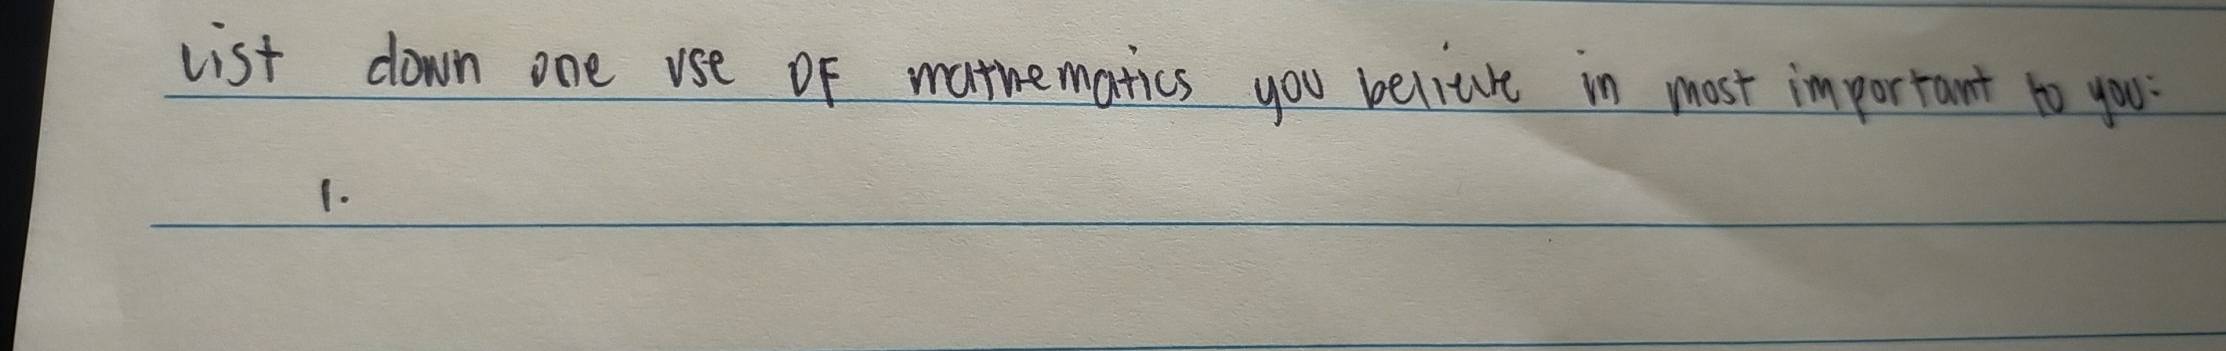 List down one use OF mathematics you believe in most important to you:
1.